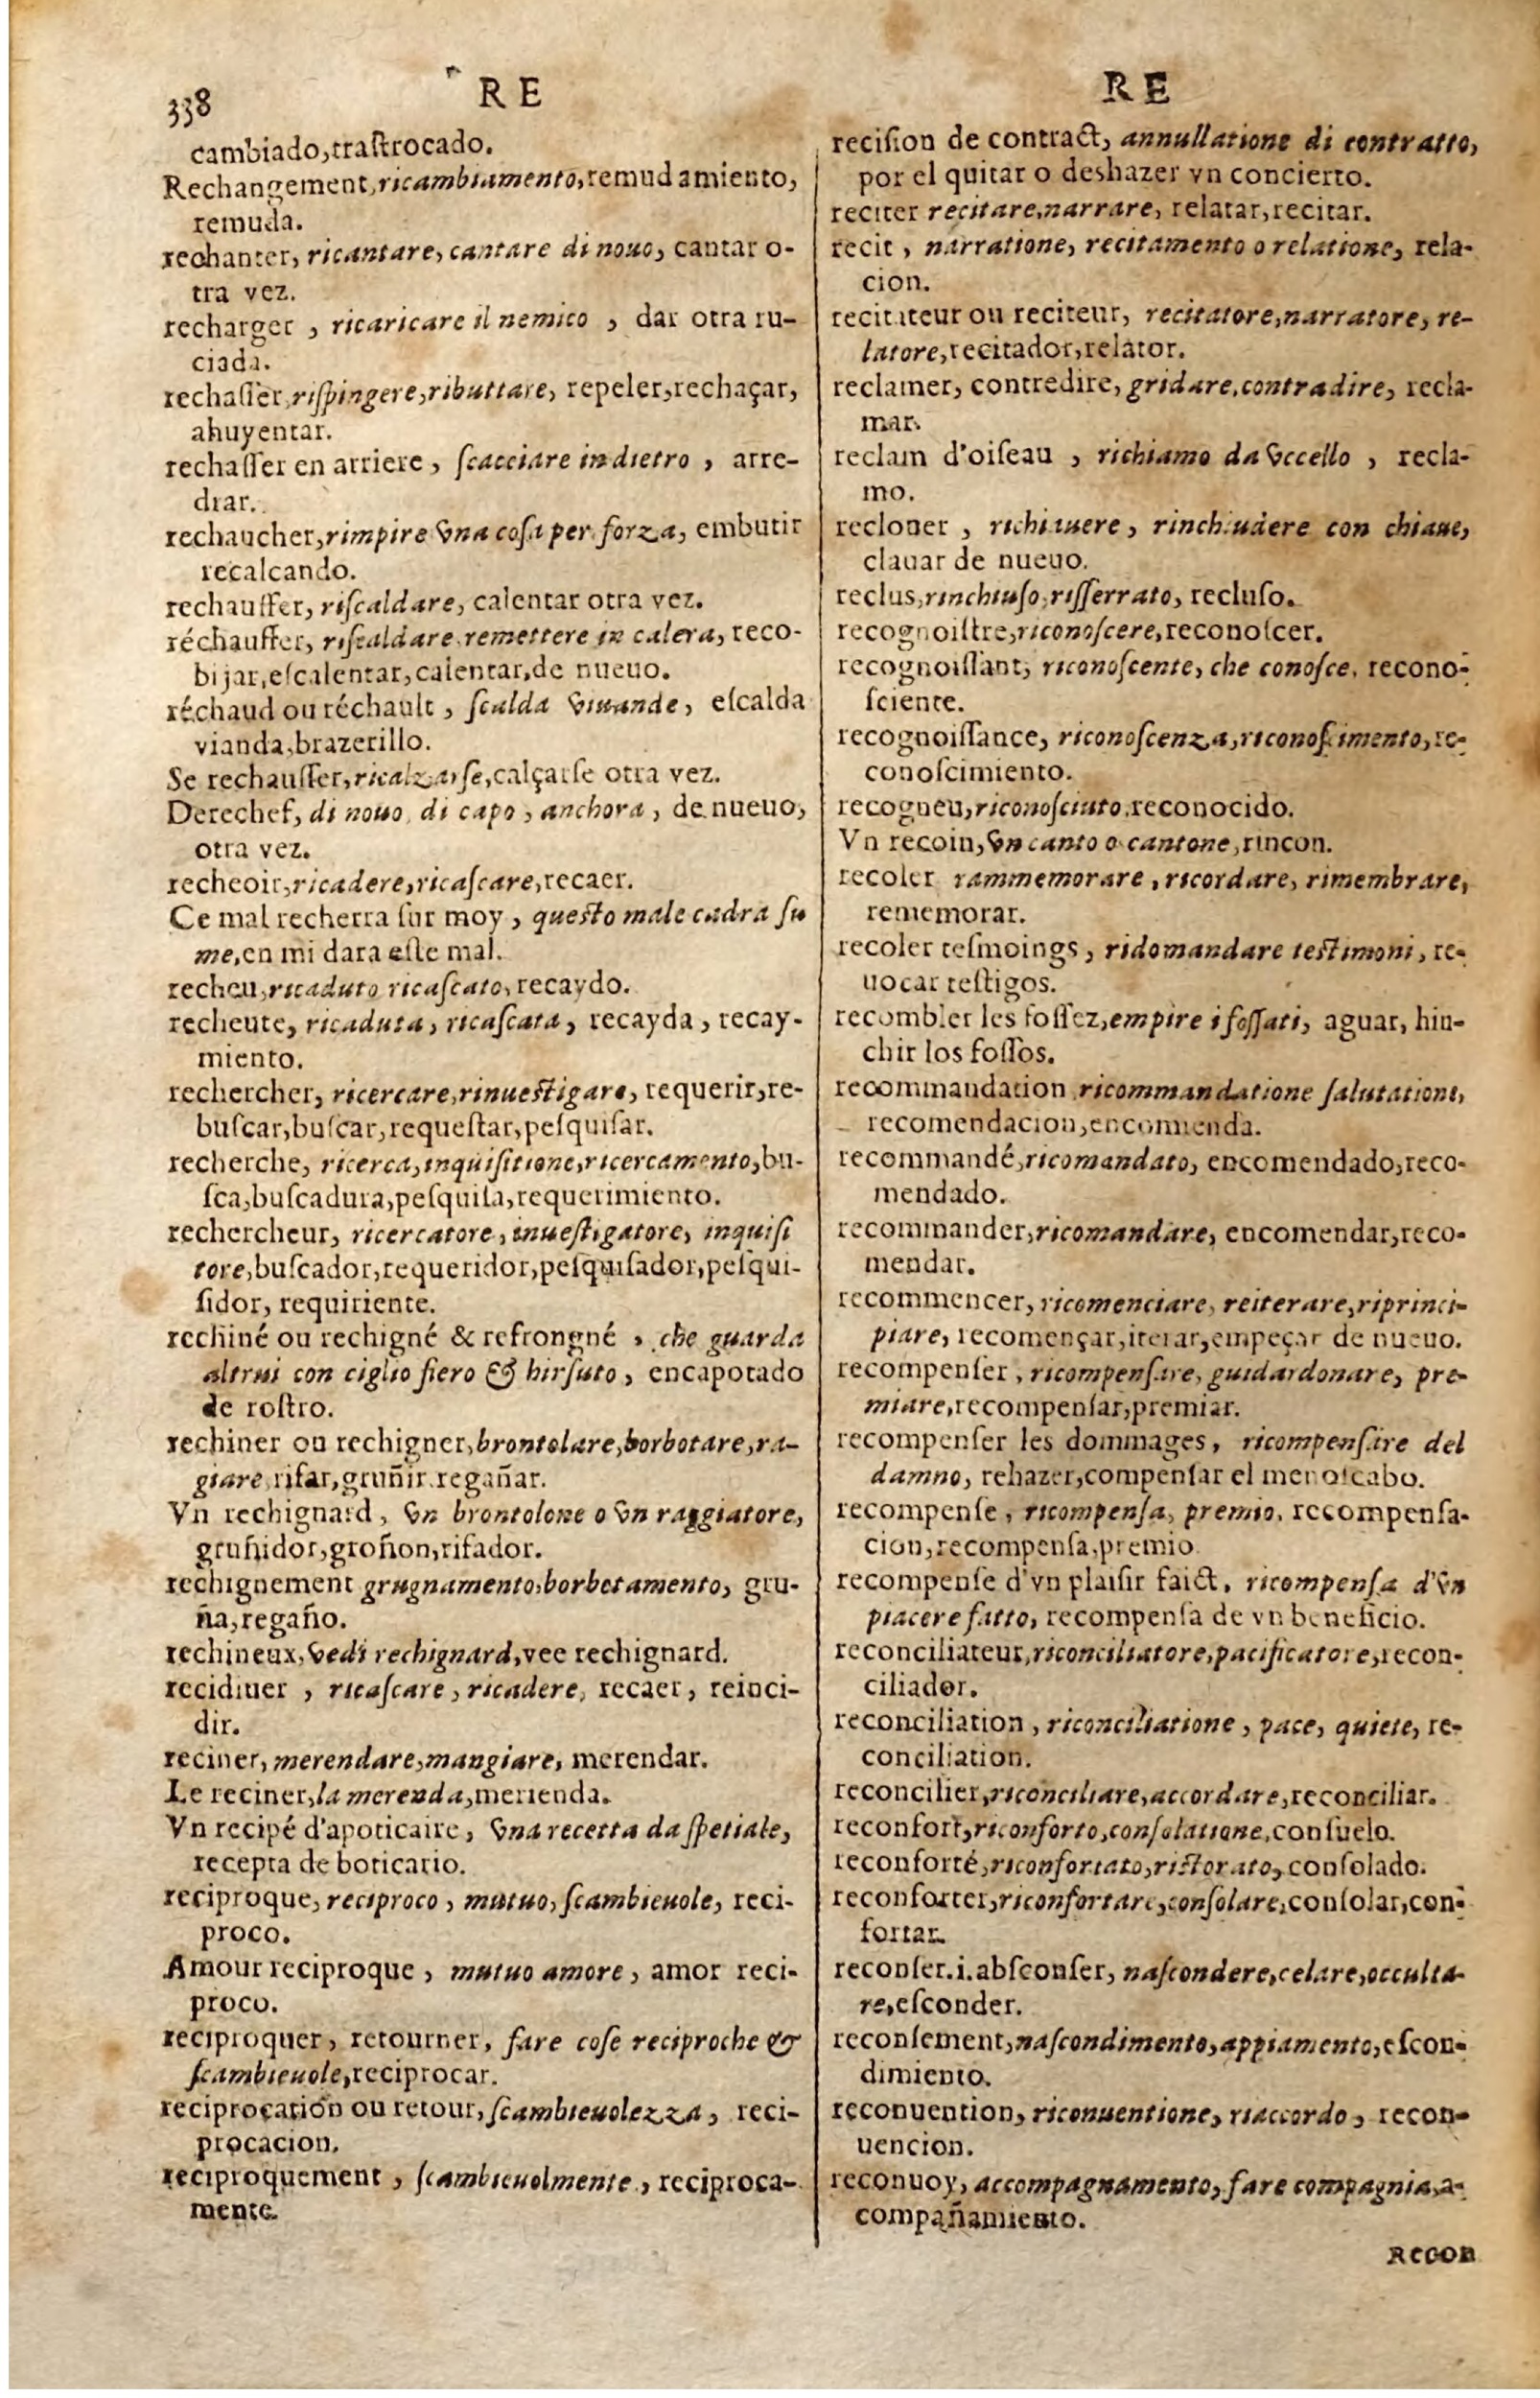 338
RE
cambiado,traſtrocado.
Rechangement,ricambiamento,remudamiento,
remuda.
rechanter, ricantare, cantare di nouo, cantar o-
tra vez.
recharger , ricaricare il nemico , dar otra ru-
ciada.
rechaſſer,riſpingere,ributtare, repeler,rechaçar,
ahuyentar.
rechaſſer en arriere , ſcacciare indietro , arre-
drar.
rechaucher,rimpire vna coſa per forza, embutir
recalcando.
rechauffer, riſcaldare, calentar otra vez.
réchauffer, riſcaldare,remettere in calera, reco-
bijar,eſcalentar,calentar,de nueuo.
réchaud ou réchault , ſcalda viuande, eſcalda
vianda,brazerillo.
Se rechauſſer,ricalzarſe,calçarſe otra vez.
Derechef, di nouo, di capo , anchora , de nueuo,
otra vez.
recheoir,ricadere,ricaſcare,recaer.
Ce mal recherra ſur moy , queſto male cadra ſu
me,en mi dara eſte mal.
recheu,ricaduto ricaſcato, recaydo.
recheute, ricaduta, ricaſcata, recayda , recay-
miento.
rechercher, ricercare,rinueſtigare, requerir,re-
buſcar,buſcar,requeſtar,peſquiſar.
recherche, ricerca,inquiſitione,ricercamento,bu-
ſca,buſcadura,peſquiſa,requerimiento.
rechercheur, ricercatore, inueſtigatore, inquiſi
tore,buſcador,requeridor,peſquiſador,peſqui-
ſidor, requiriente.
rechiné ou rechigné & refrongné , che guarda
altrui con ciglio fiero & hirſuto , encapotado
de roſtro.
rechiner ou rechigner,brontolare,borbotare,ra-
giare,rifar,gruñir.regañar.
Vn rechignard, vn brontolone o vn raggiatore,
gruñidor,groñon,rifador.
rechignement grugnamento,borbetamento, gru-
ña,regaño.
rechineux,vedi rechignard,vee rechignard.
recidiuer , ricaſcare, ricadere, recaer, reinci-
dir.
reciner, merendare,mangiare, merendar.
Le reciner,la merenda,merienda.
Vn recipé d'apoticaire, vna recetta da ſpetiale,
recepta de boticario.
reciproque, reciproco , mutuo,ſcambieuole, reci-
proco.
Amour reciproque , mutuo amore, amor reci-
proco.
reciproquer, retourner, fare coſe reciproche &
ſcambieuole,reciprocar.
reciprocation ou retour, ſcambieuolezza, reci-
procacion.
reciproquement , ſcambieuolmente , reciproca-
mente.
RE
reciſion de contract, annullatione di contratto,
por el quitar o deshazer vn concierto.
reciter recitare,narrare, relatar,recitar.
recit , narratione, recitamento o relatione, rela-
cion.
recitateur ou reciteur, recitatore,narratore, re-
latore,recitador,relator.
reclamer, contredire, gridare,contradire, recla-
mar.
reclam d'oiſeau , richiamo da vccello , recla-
mo.
reclouer , richiauere, rinchiudere con chiaue,
clauar de nueuo.
reclus,rinchiuſo,riſſerrato, recluſo.
recognoiſtre,riconoſcere,reconoſcer.
recognoiſſant, riconoſcente, che conoſce, recono-
ſciente.
recognoiſſance, riconoſcenza,riconoſcimento,re-
conoſcimiento.
recogneu,riconoſciuto,reconocido.
Vn recoin,vn canto o cantone,rincon.
recoler rammemorare , ricordare, rimembrare,
rememorar.
recoler teſmoings , ridomandare teſtimoni, re-
uocar teſtigos.
recombler les foſſez,empire i foſſati, aguar, hin-
chir los foſſos.
recommandation ricommandatione ſalutatione,
recomendacion,encomienda.
recommandé,ricomandato, encomendado,reco-
mendado.
recommander,ricomandare, encomendar,reco-
mendar.
recommencer, ricomenciare, reiterare,riprinci-
piare, recomençar,iterar,empeçar de nueuo.
recompenſer , ricompenſare, guidardonare, pre-
miare,recompenſar,premiar.
recompenſer les dommages, ricompenſare del
damno, rehazer,compenſar el menoſcabo.
recompenſe , ricompenſa, premio, recompenſa-
cion,recompenſa,premio
recompenſe d'vn plaiſir faict, ricompenſa d'vn
piacere fatto, recompenſa de vn beneficio.
reconciliateur,riconciliatore,pacificatore,recon-
ciliador.
reconciliation , riconciliatione, pace, quiete, re-
conciliation.
reconcilier,riconciliare,accordare,reconciliar.
reconfort,riconforto,conſolatione,conſuelo.
reconforté,riconfortato,riſtorato, conſolado.
reconforter,riconfortare,conſolare,conſolar,con-
fortar.
reconſer.i.abſconſer, naſcondere,celare,occulta-
re,eſconder.
reconſement,naſcondimento,appiamento,eſcon-
dimiento.
reconuention, riconuentione, riaccordo , recon-
uencion.
reconuoy, accompagnamento, fare compagnia,a-
compañamiento.
Recon